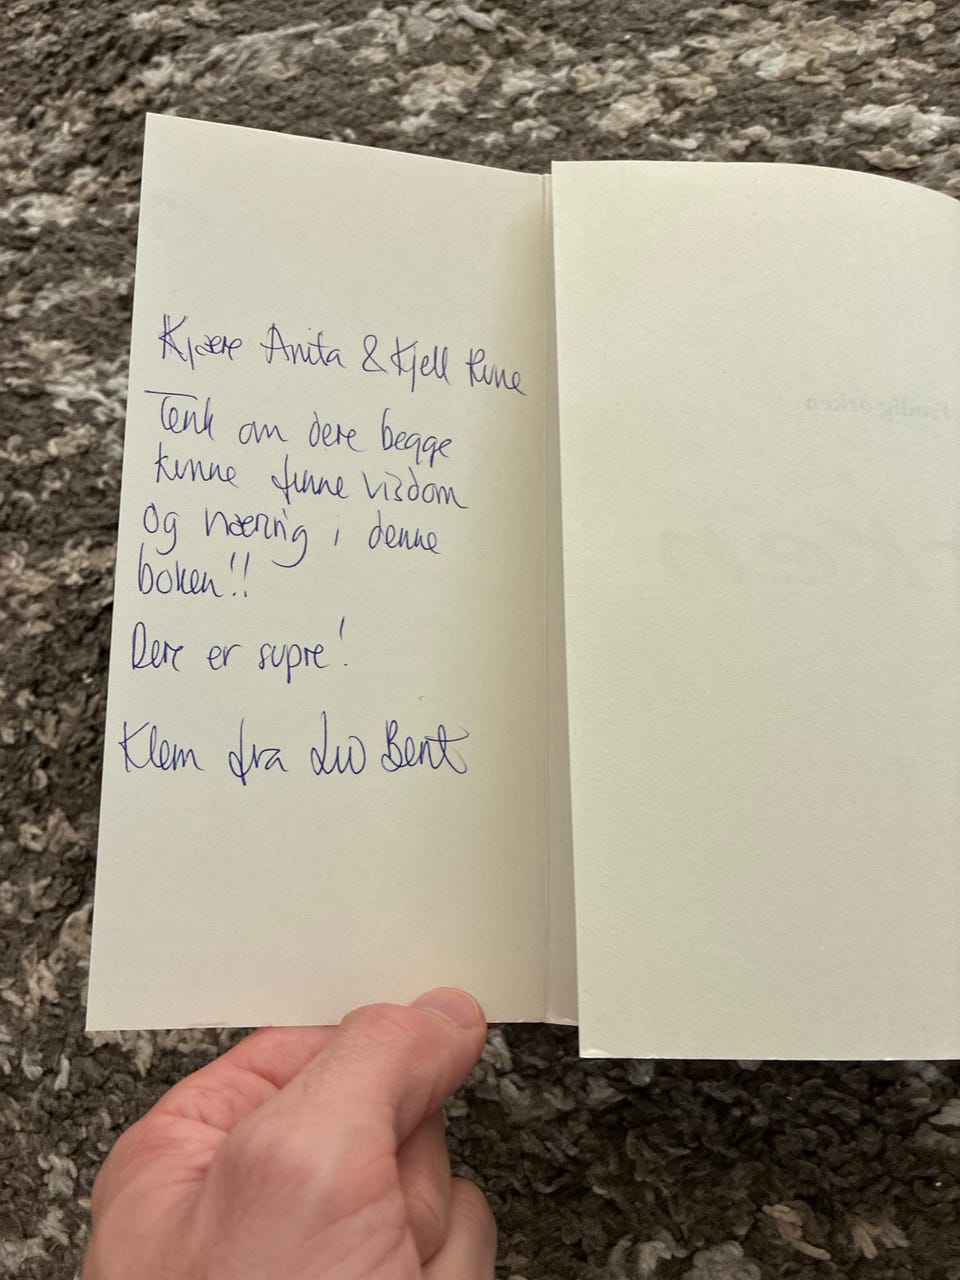 Kjære Anita & Kjell Rune
Tenk om dere begge
kunne finne visdom
og næring i denne
boken!!
Dere er supre!
Klem fra Liv Bent
Frodig ørken